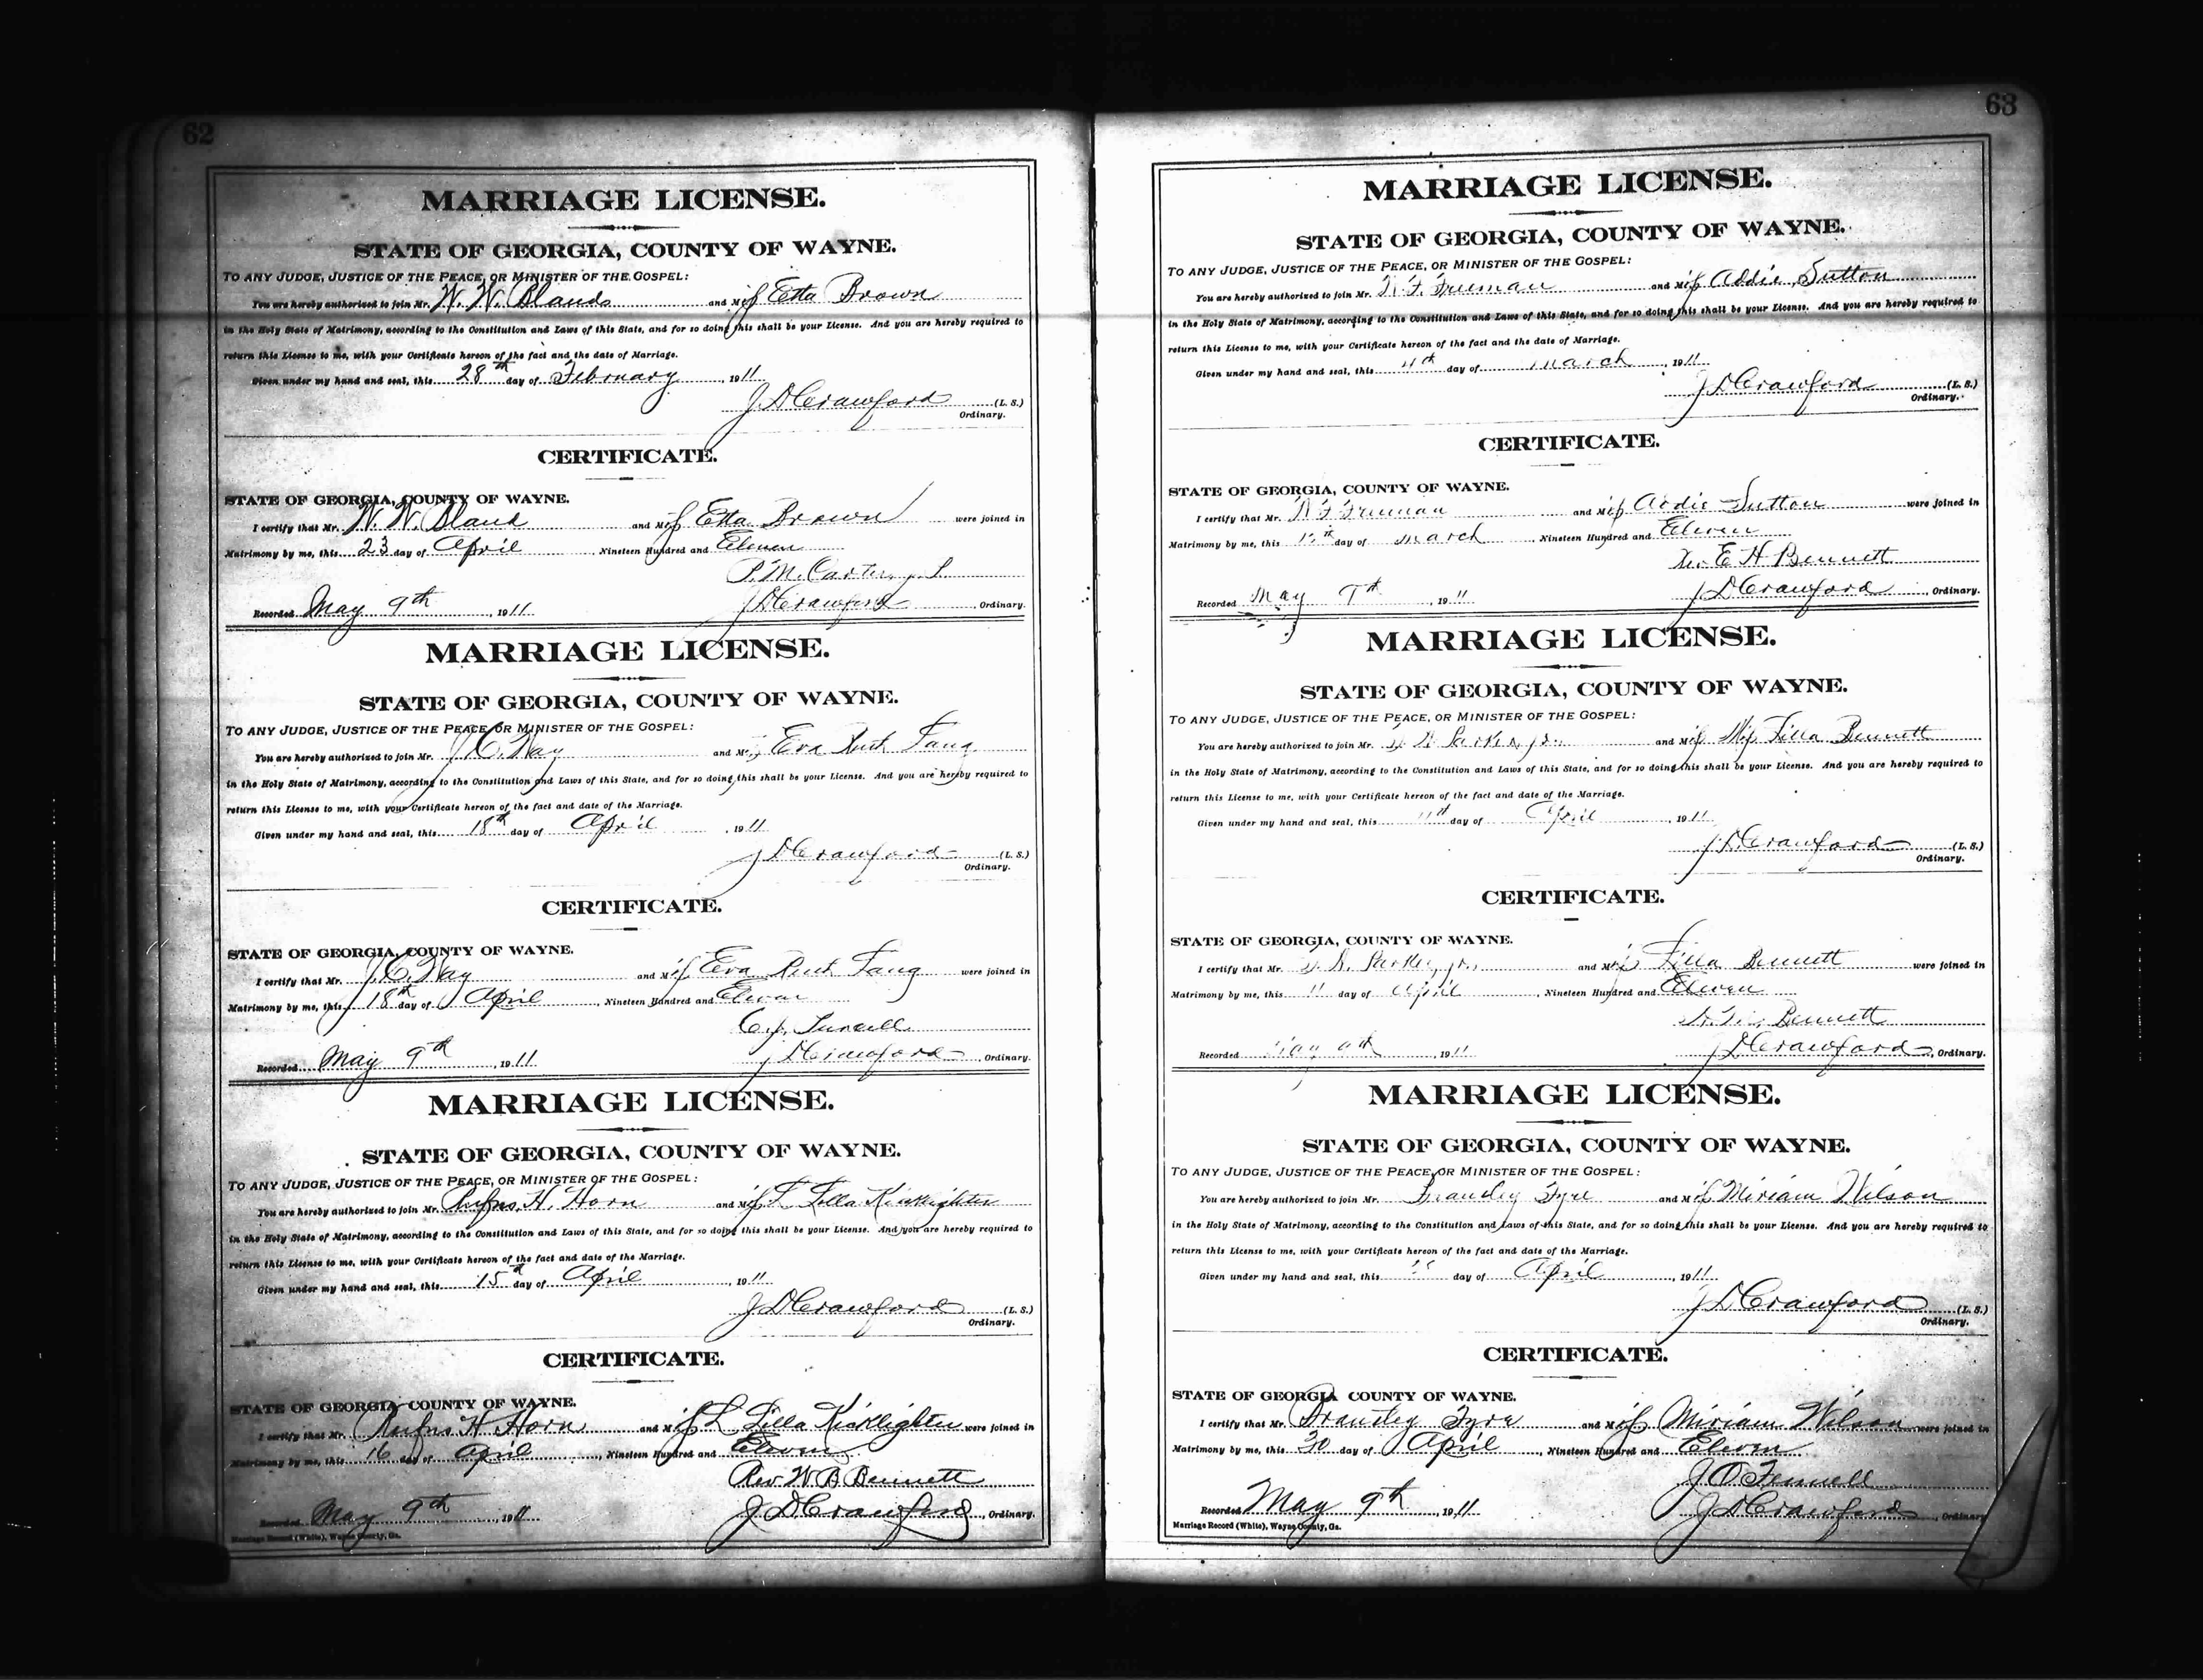 62
MARRIAGE LICENSE.
STATE OF GEORGIA, COUNTY OF WAYNE.
TO ANY JUDGE, JUSTICE OF THE PEACE, OR MINISTER OF THE GOSPEL:
You are hereby authorized to join Mr. W. W. Blands and Miss Etta Brown
in the Holy State of Matrimony, according to the Constitution and Laws of this State, and for so doing this shall be your License. And you are hereby required to
return this License to me, with your Certificate hereon of the fact and the date of Marriage.
Given under my hand and seal, this 28th day of February, 1911
J. D Crawford (L. S.)
Ordinary.
CERTIFICATE.
STATE OF GEORGIA, COUNTY OF WAYNE.
I certify that Mr. W. W. Bland and Miss Etta Brown were joined in
Matrimony by me, this 23 day of April, Nineteen Hundred and Eleven
P. M. Carter
Recorded May 9th, 1911 J D Crawford, Ordinary.
MARRIAGE LICENSE.
STATE OF GEORGIA, COUNTY OF WAYNE.
TO ANY JUDGE, JUSTICE OF THE PEACE OR MINISTER OF THE GOSPEL:
You are hereby authorized to join Mr. J. C. Way and Miss Eva Ruth
in the Holy State of Matrimony, according to the Constitution and Laws of this State, and for so doing this shall be your License. And you are hereby required to
return this License to me, with your Certificate hereon of the fact and date of the Marriage.
Given under my hand and seal, this 18th day of April, 1911
J D Crawford (L. S.)
Ordinary.
CERTIFICATE.
STATE OF GEORGIA, COUNTY OF WAYNE.
I certify that Mr. J. C. Way and Miss Eva Ruth were joined in
Matrimony by me, this 18th day of April, Nineteen Hundred and Eleven
C. J.
Recorded May 9th, 1911 J D Crawford, Ordinary.
MARRIAGE LICENSE.
STATE OF GEORGIA, COUNTY OF WAYNE.
TO ANY JUDGE, JUSTICE OF THE PEACE, OR MINISTER OF THE GOSPEL:
You are hereby authorized to join Mr. Rufus H. Horn and Miss L Lilla Kicklighter
in the Holy State of Matrimony, according to the Constitution and Laws of this State, and for so doing this shall be your License. And you are hereby required to
return this License to me, with your Certificate hereon of the fact and date of the Marriage.
Given under my hand and seal, this 15th day of April, 1911
J D Crawford (L. S.)
Ordinary.
CERTIFICATE.
STATE OF GEORGIA, COUNTY OF WAYNE.
I certify that Mr. Rufus H Horn and Miss L Lilla Kicklighter were joined in
Matrimony by me, this 16 day of April, Nineteen Hundred and Eleven
Rev W B Bennett
Recorded May 9th, 1911 J D Crawford, Ordinary.
Marriage Record (White), Wayne County, Ga.
63
MARRIAGE LICENSE.
STATE OF GEORGIA, COUNTY OF WAYNE.
TO ANY JUDGE, JUSTICE OF THE PEACE, OR MINISTER OF THE GOSPEL:
You are hereby authorized to join Mr. F. Freeman and Miss Addie Sutton
in the Holy State of Matrimony, according to the Constitution and Laws of this State, and for so doing this shall be your License. And you are hereby required to
return this License to me, with your Certificate hereon of the fact and the date of Marriage.
Given under my hand and seal, this day of March, 1911
J D Crawford (L. S.)
Ordinary.
CERTIFICATE.
STATE OF GEORGIA, COUNTY OF WAYNE.
I certify that Mr. F Freeman and Miss Addie Sutton were joined in
Matrimony by me, this day of March, Nineteen Hundred and Eleven
Rev. E H Bennett
Recorded May 9th, 1911 J D Crawford, Ordinary.
MARRIAGE LICENSE.
STATE OF GEORGIA, COUNTY OF WAYNE.
TO ANY JUDGE, JUSTICE OF THE PEACE, OR MINISTER OF THE GOSPEL:
You are hereby authorized to join Mr. Parker, Jr. and Miss Miss Lilla Bennett
in the Holy State of Matrimony, according to the Constitution and Laws of this State, and for so doing this shall be your License. And you are hereby required to
return this License to me, with your Certificate hereon of the fact and date of the Marriage.
Given under my hand and seal, this 11th day of April, 1911
J. D Crawford (L. S.)
Ordinary.
CERTIFICATE.
STATE OF GEORGIA, COUNTY OF WAYNE.
I certify that Mr. Parker, Jr., and Miss Lilla Bennett were joined in
Matrimony by me, this 11 day of April, Nineteen Hundred and Eleven
Bennett
Recorded May 9th, 1911 J D Crawford, Ordinary.
MARRIAGE LICENSE.
STATE OF GEORGIA, COUNTY OF WAYNE.
TO ANY JUDGE, JUSTICE OF THE PEACE, OR MINISTER OF THE GOSPEL:
You are hereby authorized to join Mr. Brantley Tyre and Miss Miriam Wilson
in the Holy State of Matrimony, according to the Constitution and Laws of this State, and for so doing this shall be your License. And you are hereby required to
return this License to me, with your Certificate hereon of the fact and date of the Marriage.
Given under my hand and seal, this day of April, 1911
J D Crawford (L. S.)
Ordinary.
CERTIFICATE.
STATE OF GEORGIA COUNTY OF WAYNE.
I certify that Mr. Brantley Tyre and Miss Miriam Wilson were joined in
Matrimony by me, this 30 day of April, Nineteen Hundred and Eleven
J O Fennell
Recorded May 9th, 1911 J D Crawford, Ordinary
Marriage Record (White), Wayne County, Ga.